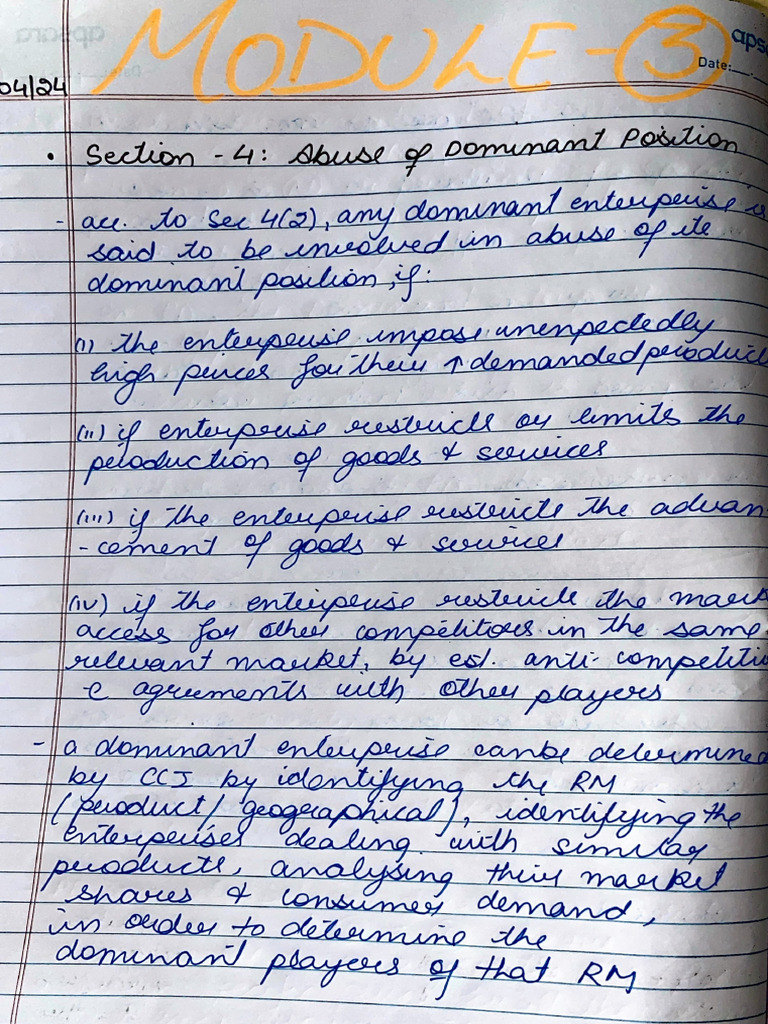 MODULE - 3
apsara
Date:
04/24
• Section - 4: Abuse of Dominant Position
- acc. to Sec 4(2), any dominant enterprise is
said to be involved in abuse of its
dominant position, if:
(i) the enterprise impose unexpectedly
high prices for their ↑ demanded product
(ii) if enterprise restricts or limits the
production of goods & services
(iii) if the enterprise restricts the advan
-cement of goods & services
(iv) if the enterprise restricts the mark
access for other competitors in the same
relevant market, by est. anti-competitiv
-e agreements with other players
- a dominant enterprise can be determined
by CCI by identifying the RM
(product/geographical), identifying the
enterprises dealing with similar
products, analysing their market
shares & consumer demand,
in order to determine the
dominant players of that RM